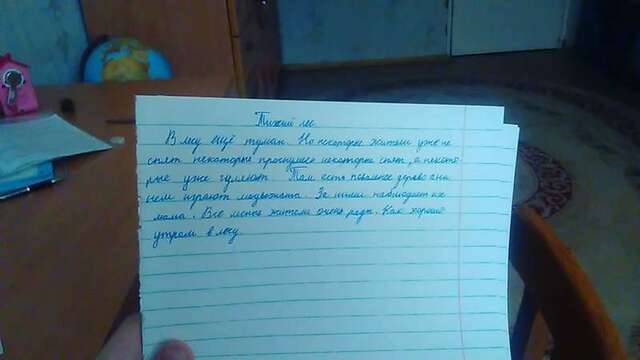 Тихий лес
В лесу ещё туман. Но некоторые жители уже не
спят некоторые проснулись некоторые спят, а некото
рые уже гуляют. Там есть поваленое дерево а на
нем играют медвежата. За ними наблюдает их
мама. Все жители очень рады. Как хорошо
утром в лесу.